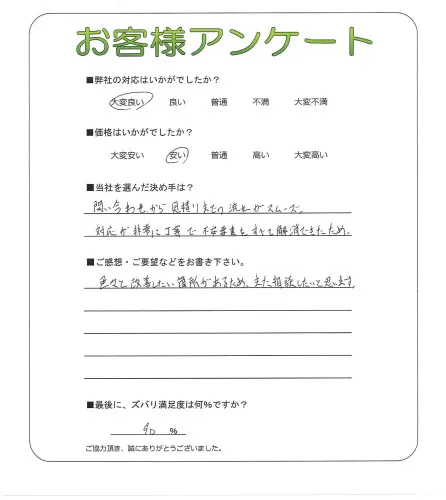 お客様アンケート
■弊社の対応はいかがでしたか？
大変良い 良い 普通 不満 大変不満
■価格はいかがでしたか？
大変安い 安い 普通 高い 大変高い
■当社を選んだ決め手は？
問い合わせから見積りまでの流れがスムーズ。
対応が非常に丁寧で不安要素をすべて解消できたため。
■ご感想・ご要望などをお書き下さい。
色々と改善したい箇所があるため、また相談したいと思います
■最後に、ズバリ満足度は何％ですか？
90 ％
ご協力頂き、誠にありがとうございました。